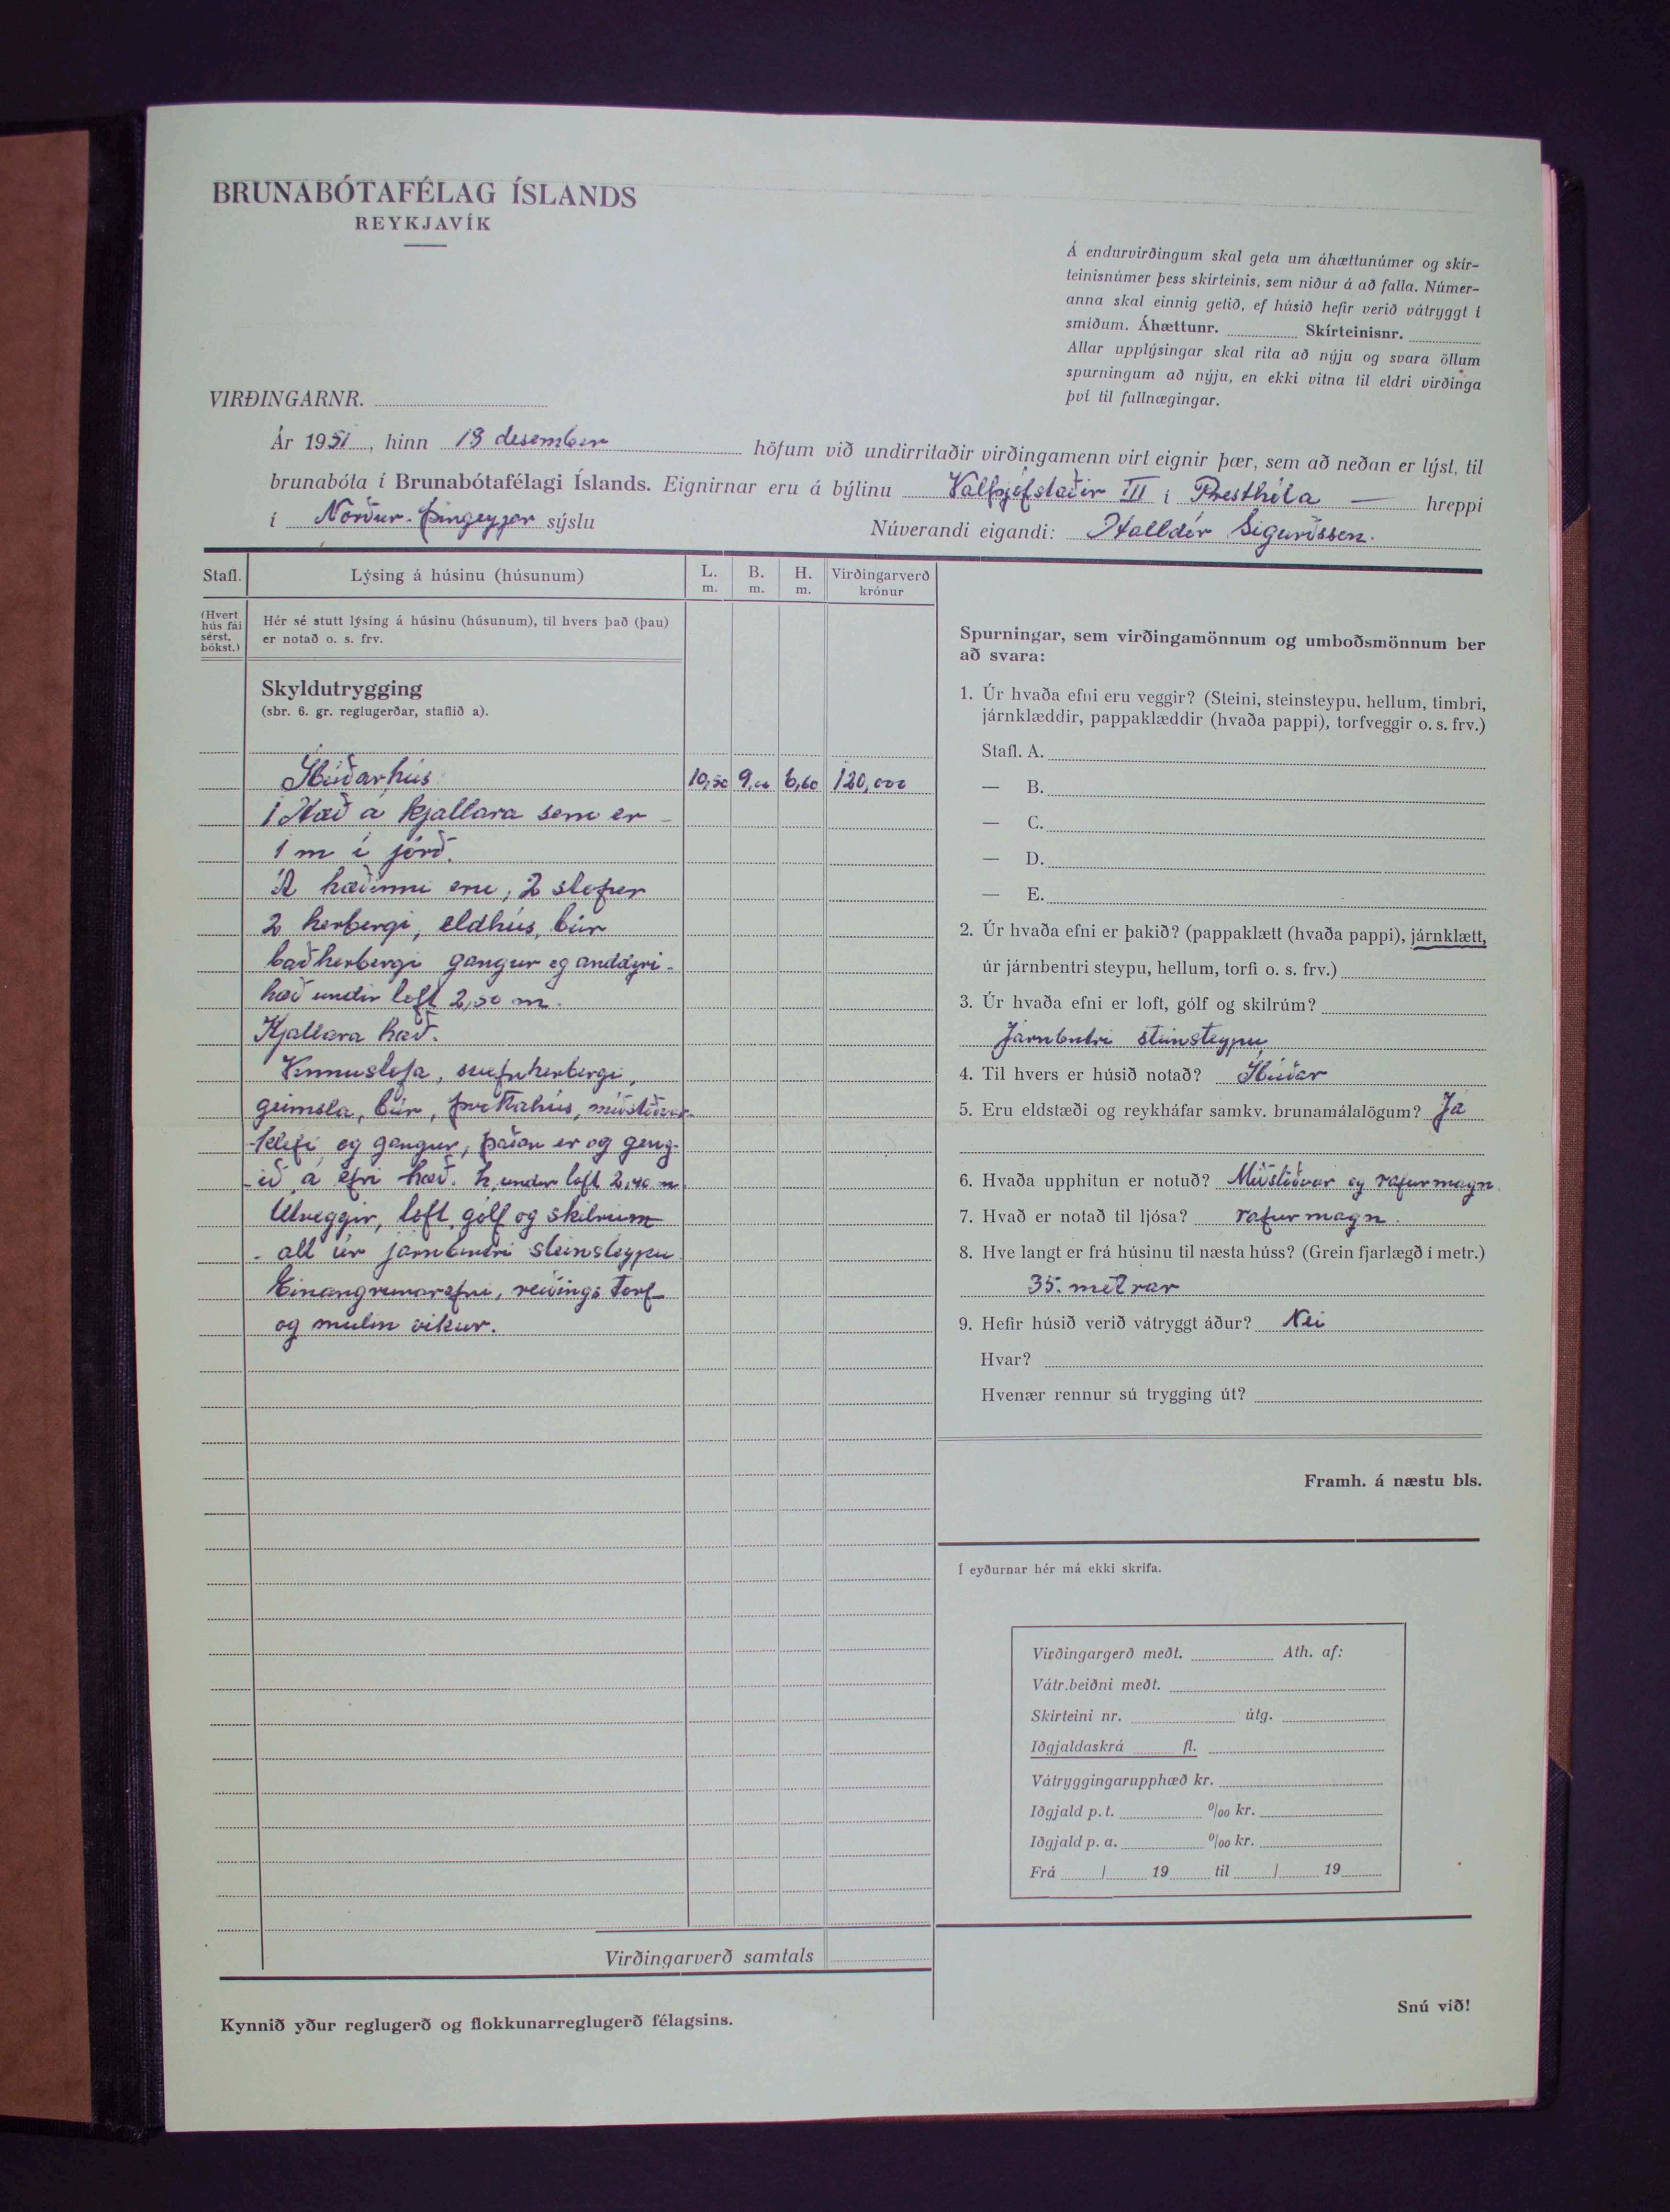 BRUNABÓTAFÉLAG ÍSLANDS
REYKJAVÍK
Á endurvirðingum skal geta um áhættunúmer og skír-
teinisnúmer þess skírteinis, sem niður á að falla. Númer-
anna skal einnig getið, ef húsið hefir verið vátryggt í
smíðum. Áhættunr. Skírteinisnr.
Allar upplýsingar skal rita að nýju og svara öllum
spurningum að nýju, en ekki vitna til eldri virðinga
því til fullnægingar.
VIRÐINGARNR.
Ár 1951, hinn 13 desember höfum við undirritaðir virðingamenn virt eignir þær, sem að neðan er lýst, til
brunabóta í Brunabótafélagi Íslands. Eignirnar eru á býlinu Valþjófstaðir III í Presthóla — hreppi
í Norður-Þingeyjar sýslu Núverandi eigandi: Halldór Sigurðsson.
Stafl. Lýsing á húsinu (húsunum) L. m. B. m. H. m. Virðingarverð krónur
(Hvert hús fái sérst. bókst.)
Hér sé stutt lýsing á húsinu (húsunum), til hvers það (þau)
er notað o. s. frv.
Skyldutrygging
(sbr. 6. gr. reglugerðar, staflið a).
Íbúðarhús 10,50 9,00 6,60 120,000
1 Hæð á kjallara sem er
1 m í jörð.
Á hæðinni eru, 2 stofur
2 herbergi, eldhús, búr
baðherbergi gangur og anddyri-
hæð undir loft 2,50 m.
Kjallara hæð.
Vinnustofa, svefnherbergi,
geimsla, búr, þvottahús, miðstöðvar-
-klefi og gangur, þaðan er og geng-
-ið á efri hæð. h. undir loft 2,40 m.
Útveggir, loft, gólf og skilrúm
- all úr járnbentri steinsteypu.
Einangrunarefni, reiðings torf
og mulin vikur.
Virðingarverð samtals
Kynnið yður reglugerð og flokkunarreglugerð félagsins.
Spurningar, sem virðingamönnum og umboðsmönnum ber
að svara:
1. Úr hvaða efni eru veggir? (Steini, steinsteypu, hellum, timbri,
járnklæddir, pappaklæddir (hvaða pappi), torfveggir o. s. frv.)
Stafl. A.
— B.
— C.
— D.
— E.
2. Úr hvaða efni er þakið? (pappaklætt (hvaða pappi), járnklætt,
úr járnbentri steypu, hellum, torfi o. s. frv.)
3. Úr hvaða efni er loft, gólf og skilrúm?
Járnbentri steinsteypu
4. Til hvers er húsið notað? Íbúðar
5. Eru eldstæði og reykháfar samkv. brunamálalögum? Já
6. Hvaða upphitun er notuð? Miðstöðvar og rafurmagn
7. Hvað er notað til ljósa? rafurmagn.
8. Hve langt er frá húsinu til næsta húss? (Grein fjarlægð í metr.)
35. metrar
9. Hefir húsið verið vátryggt áður? Nei
Hvar?
Hvenær rennur sú trygging út?
Framh. á næstu bls.
Í eyðurnar hér má ekki skrifa.
Virðingargerð meðt. Ath. af:
Vátr.beiðni meðt.
Skírteini nr. útg.
Iðgjaldaskrá fl.
Vátryggingarupphæð kr.
Iðgjald p. t. ‰ kr.
Iðgjald p. a. ‰ kr.
Frá / 19 til / 19
Snú við!